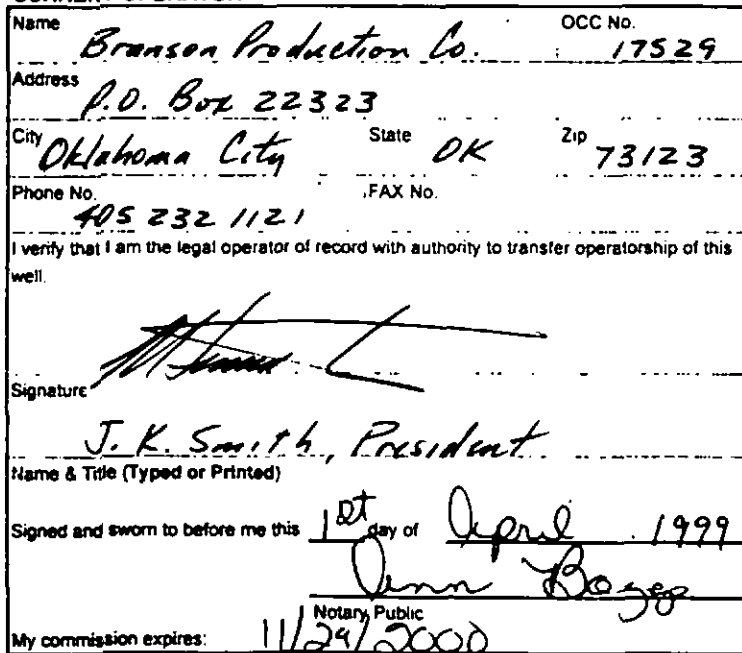 Name OCC No.
Branson Production Co. 17529
Address
P.O. Box 22323
City Oklahoma City State OK Zip 73123
Phone No. FAX No.
405 232 1121
I verify that I am the legal operator of record with authority to transfer operatorship of this
well.
Signature
J. K. Smith, President
Name & Title (Typed or Printed)
Signed and sworn to before me this 1st day of April 1999
Ann
Notary Public
My commission expires: 11/29/2000